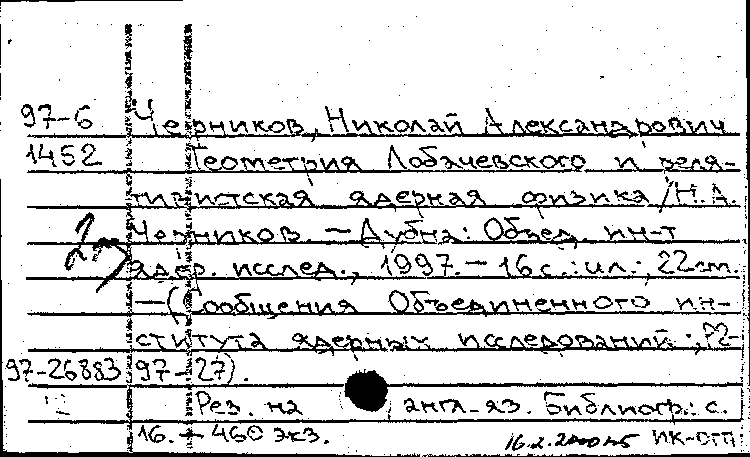 97-6 Черников, Николай Александрович
1452 Геометрия Лобачевского и реля-
тивистская ядерная физика / Н.А.
Черников. — Дубна: Объед. ин-т
ядер. исслед., 1997. — 16 с.: ил.; 22 см.
— (Сообщения Объединенного ин-
ститута ядерных исследований; Р2-
97-26883 97-27).
Рез. на англ. яз. Библиогр.: с.
16. — 460 экз.
ИК-ОГП